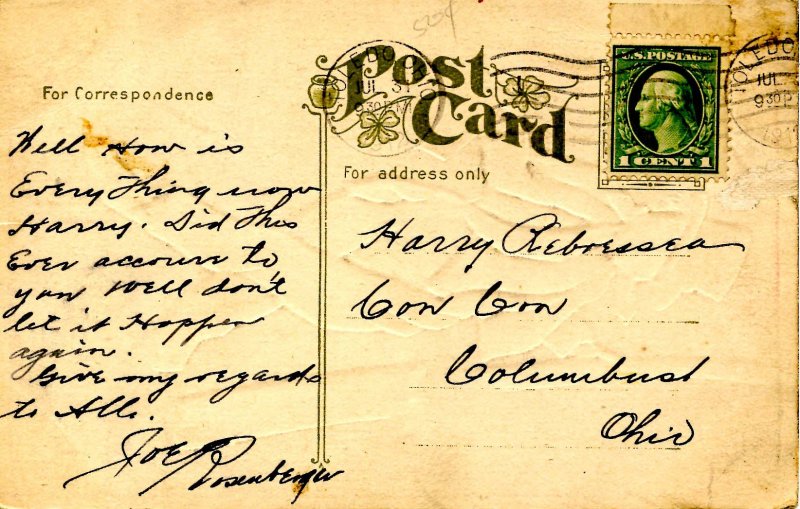 5204
Post
Card
TOLEDO, O
JUL 31
9 30 P M
U.S. POSTAGE
1 CENT 1
TOLEDO
JUL
9 30 P
191
For Correspondence
For address only
Well How is
Every Thing now
Harry. Did This
Ever accoure to
you Well don't
let it Happen
again.
Give my regards
to All.
Joe Rosenberger
Harry
Con Con
Columbus
Ohio